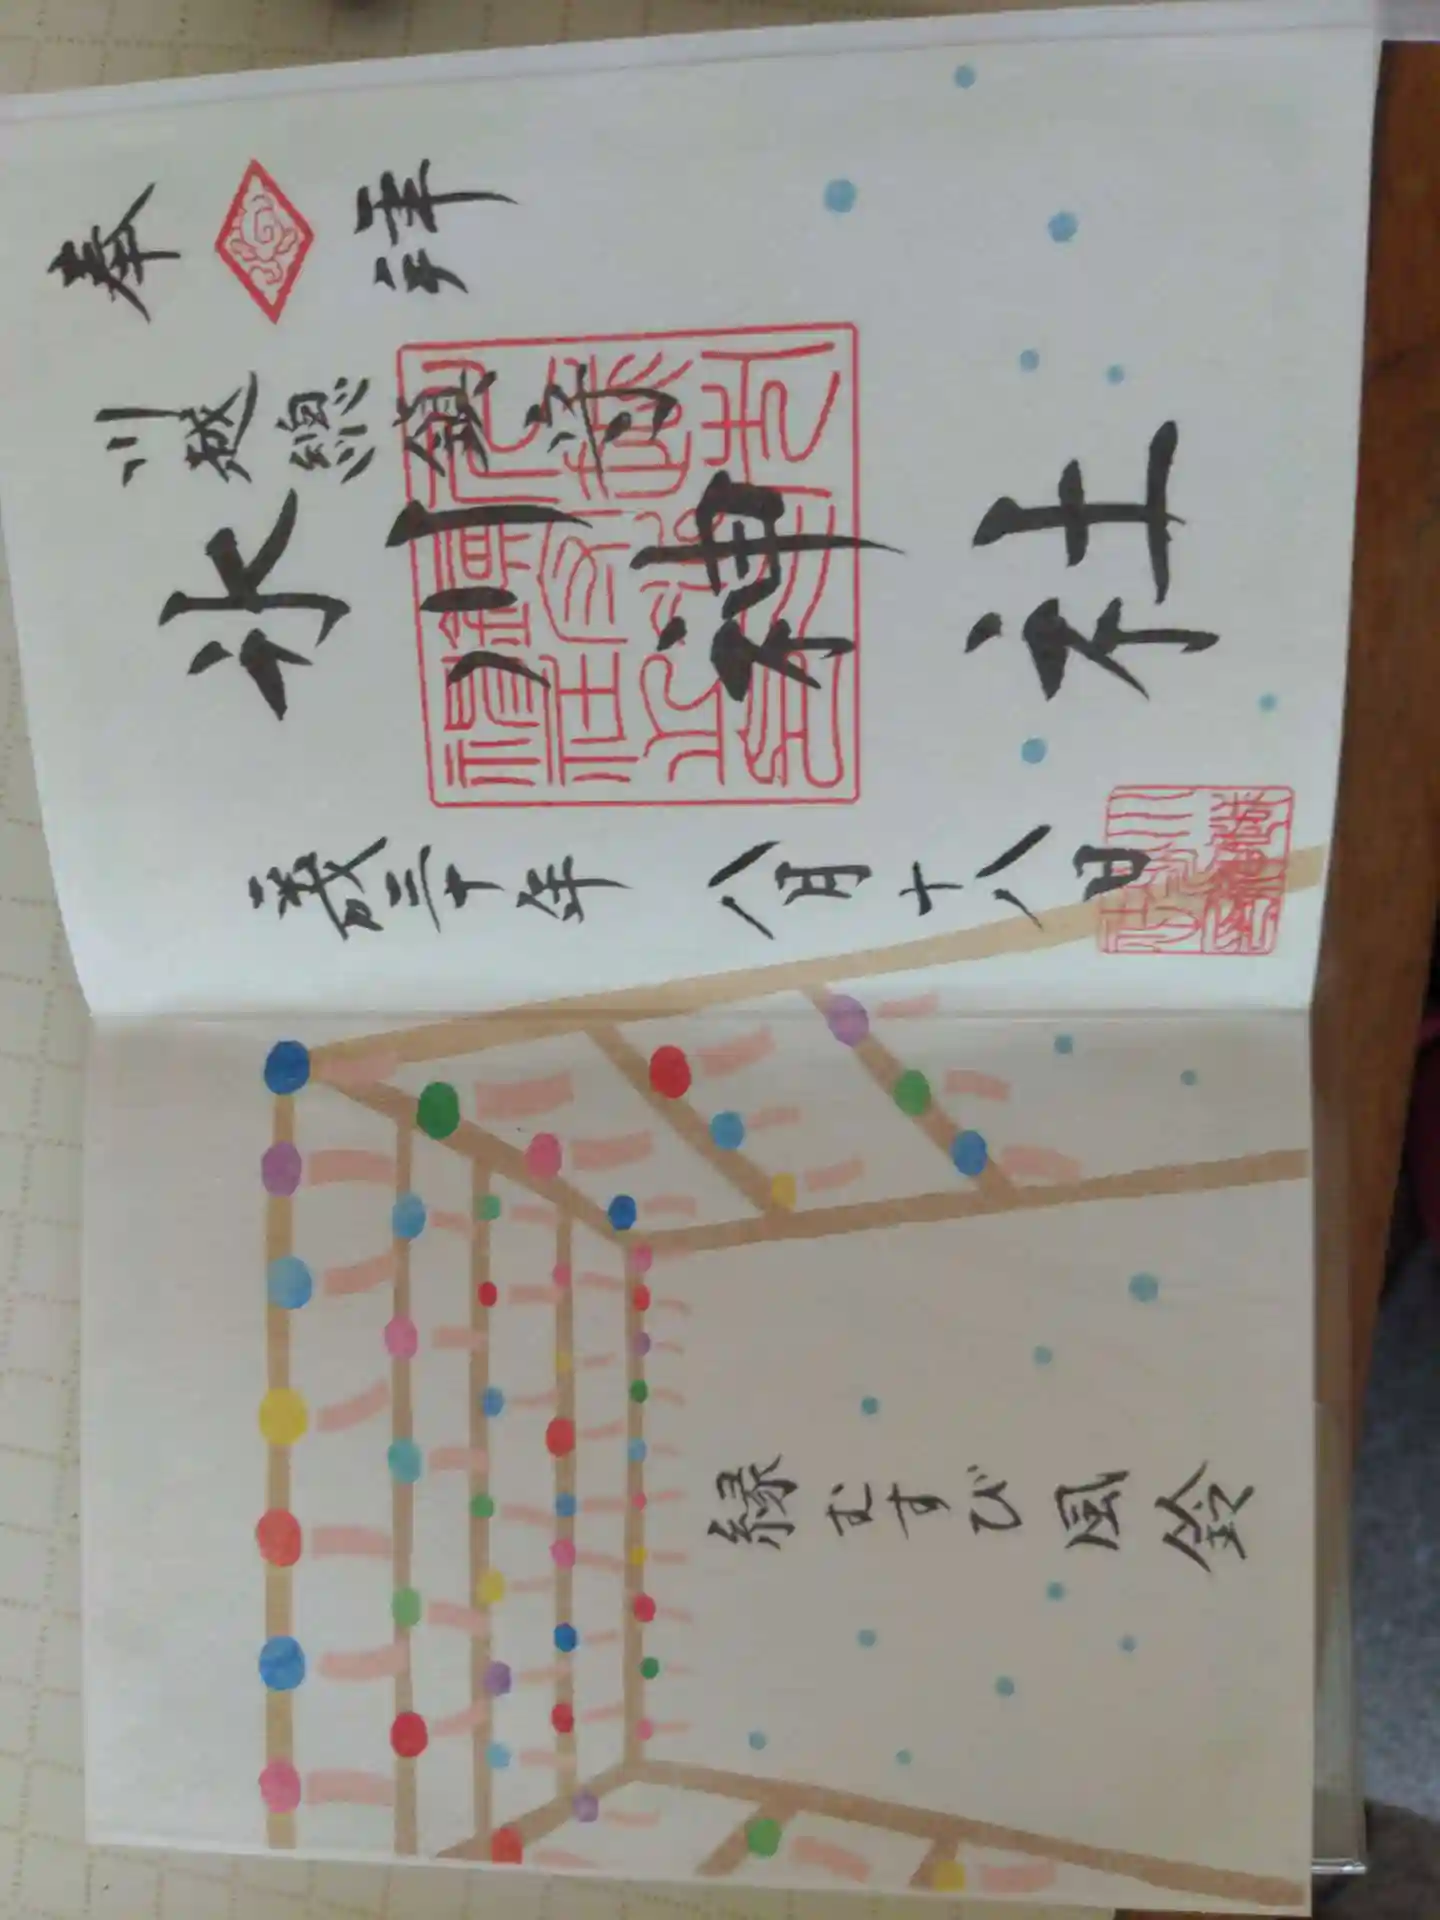 奉拝
川越總鎮守
氷川神社
平成三十年八月十八日
縁むすび風鈴